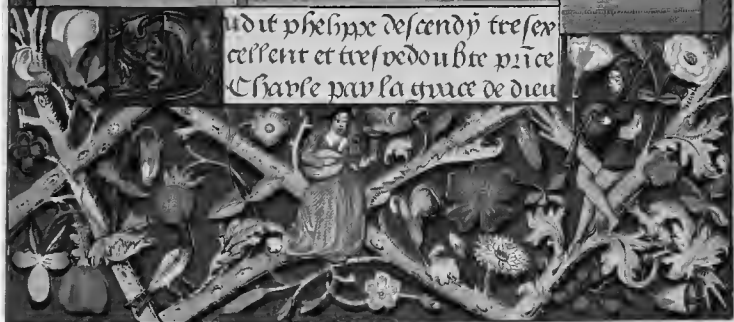 udit phelippe descendy tresex
cellent et tresredoubte prīce
Charle par la grace de dieu